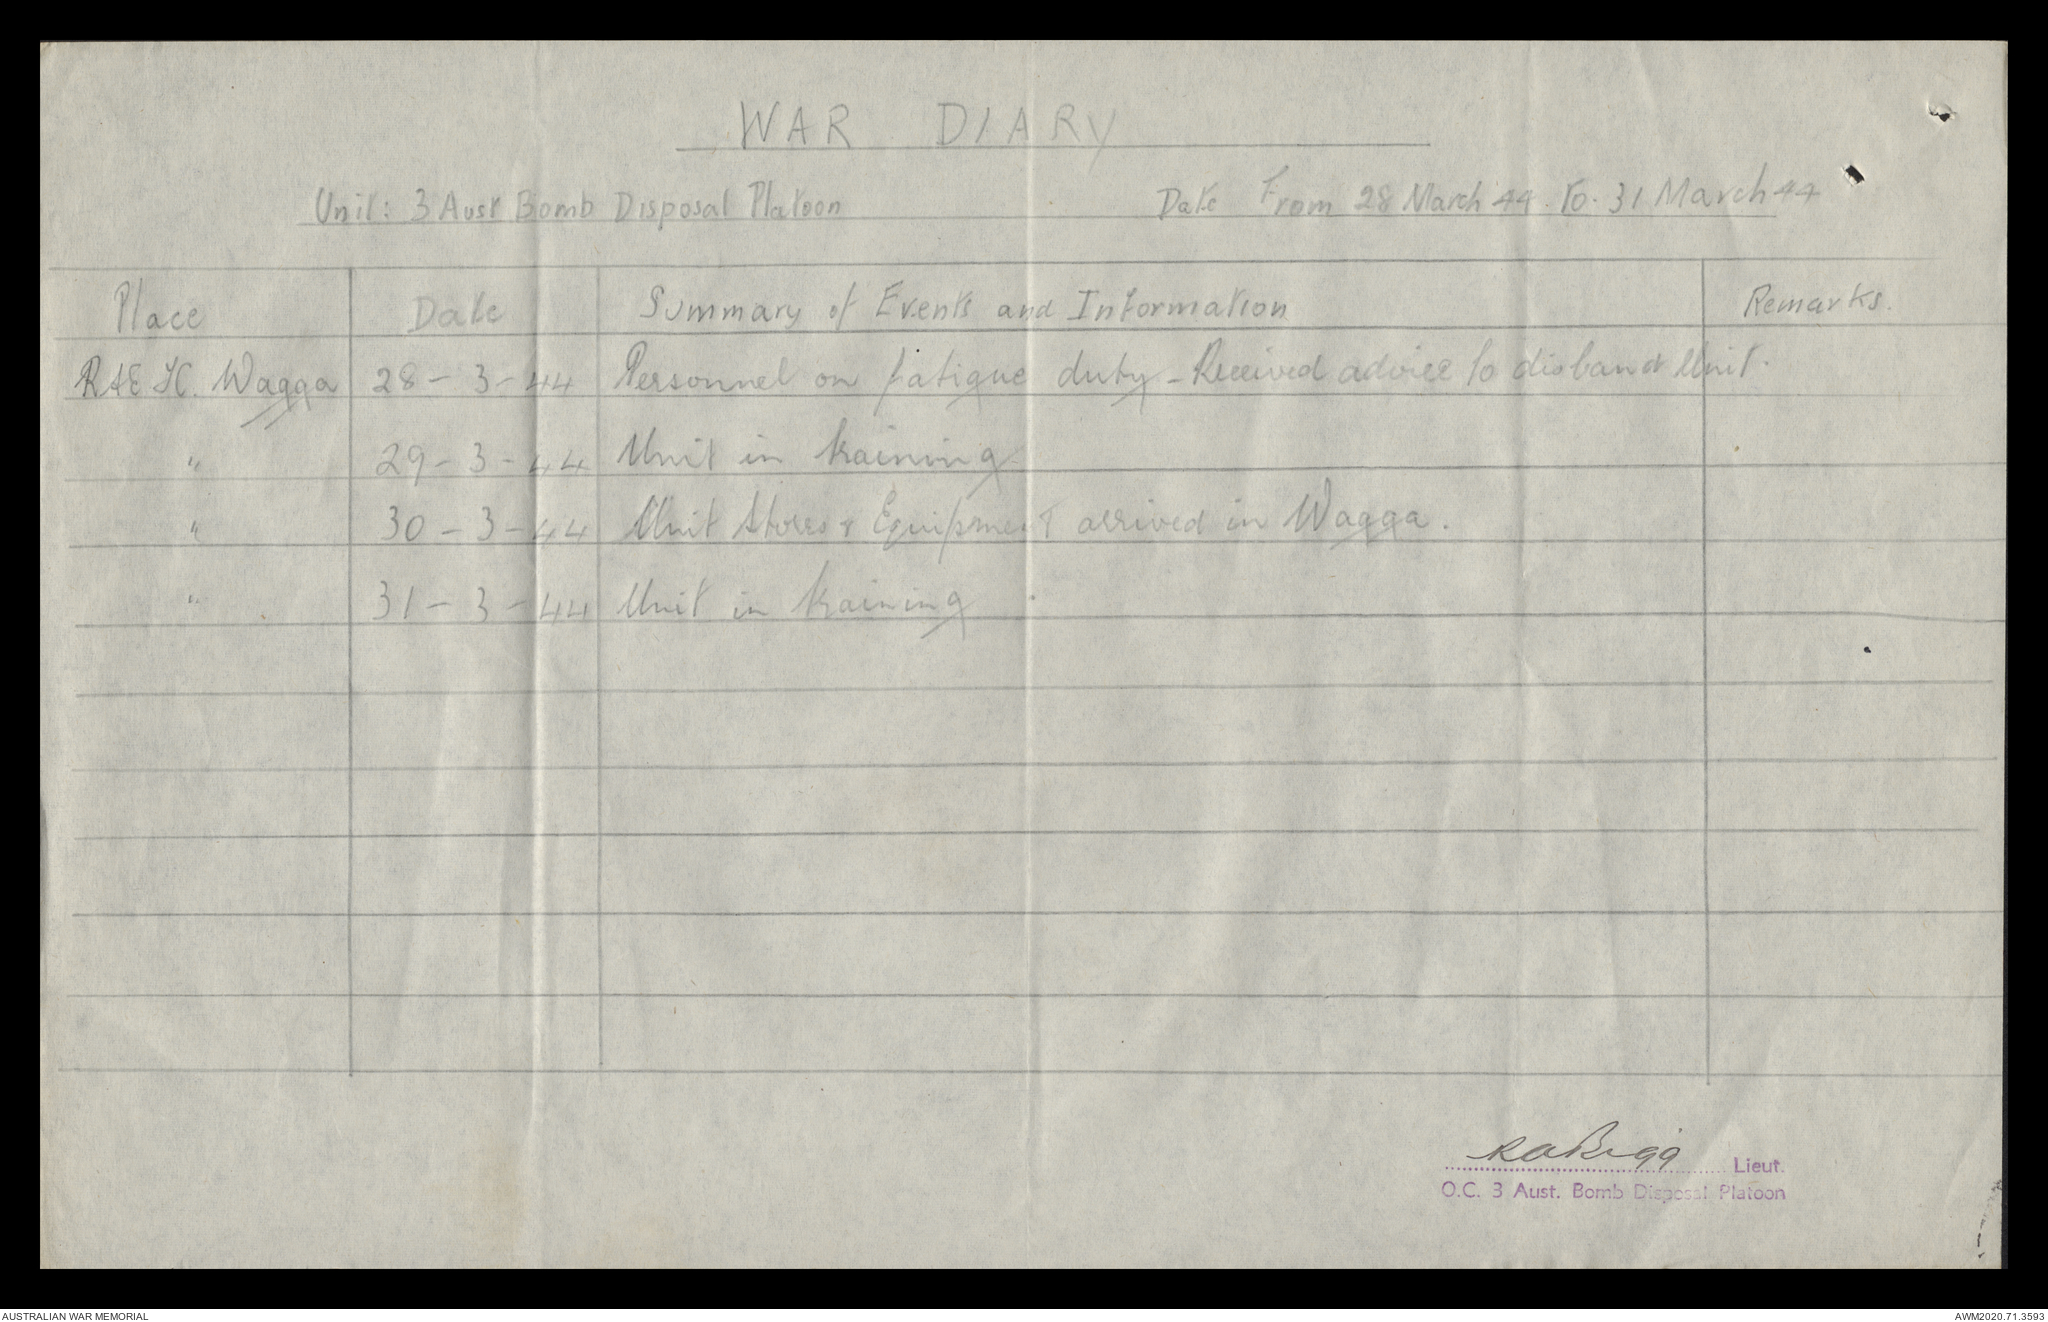 WAR DIARY
Unit: 3 Aust Bomb Disposal Platoon Date From 28 March 44. To. 31 March 44
Place Date Summary of Events and Information Remarks.
RAE Wagga 28-3-44 Personnel on fatigue duty - Received advice to disband Unit.
" 29-3-44 Unit in training
" 30-3-44 Unit Stores & Equipment arrived in Wagga.
" 31-3-44 Unit in training
Lieut.
O.C. 3 Aust. Bomb Disposal Platoon
AUSTRALIAN WAR MEMORIAL AWM2020.71.3593